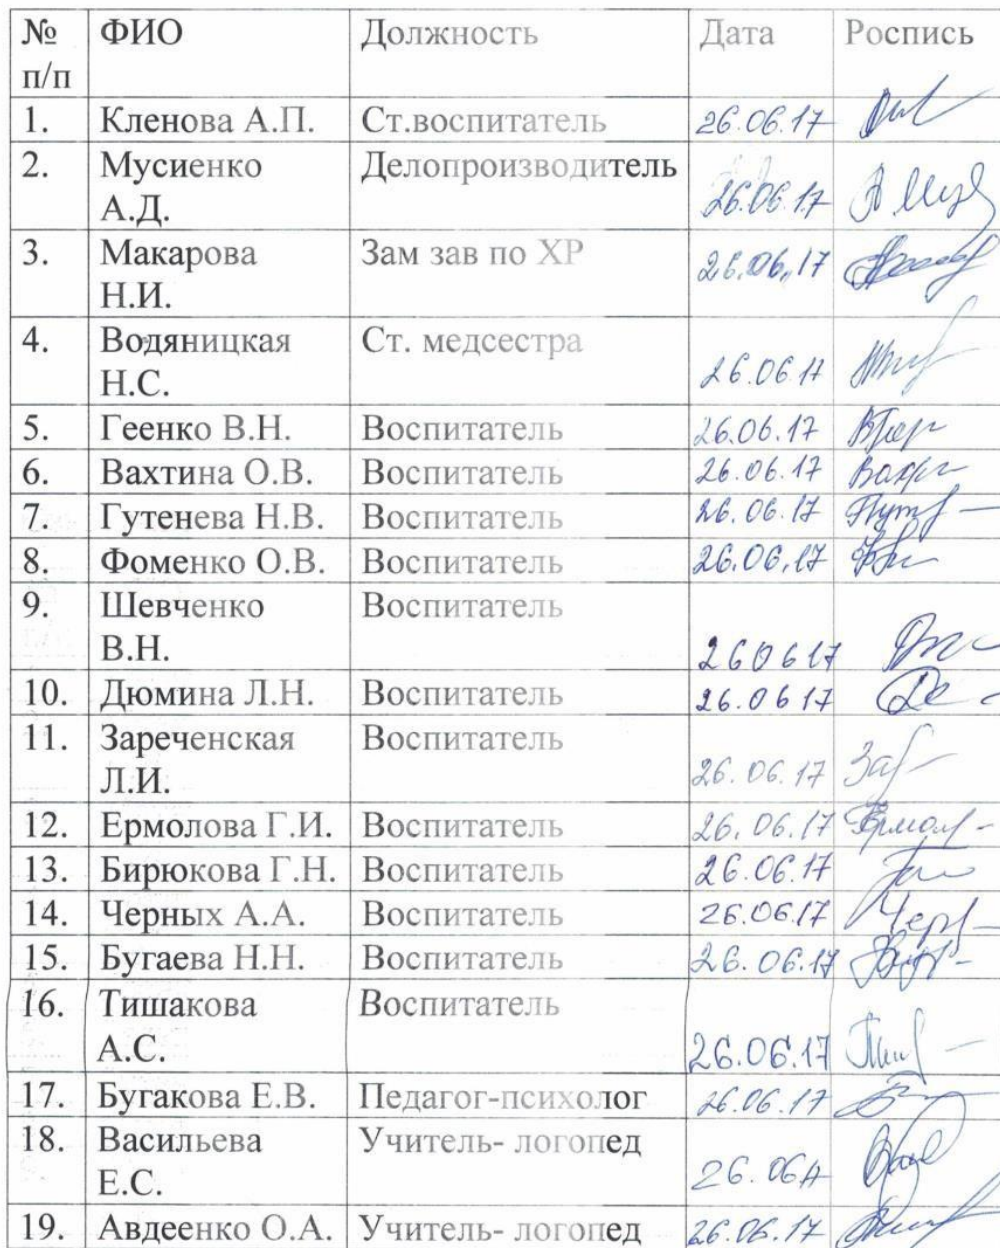 № ФИО Должность Дата Роспись
п/п
1. Кленова А.П. Ст.воспитатель 26.06.17
2. Мусиенко Делопроизводитель
А.Д. 26.06.17
3. Макарова Зам зав по ХР 26.06.17
Н.И.
4. Водяницкая Ст. медсестра
Н.С. 26.06.17
5. Геенко В.Н. Воспитатель 26.06.17
6. Вахтина О.В. Воспитатель 26.06.17
7. Гутенева Н.В. Воспитатель 26.06.17
8. Фоменко О.В. Воспитатель 26.06.17
9. Шевченко Воспитатель
В.Н. 26 06 17
10. Дюмина Л.Н. Воспитатель 26.06 17
11. Зареченская Воспитатель
Л.И. 26.06.17
12. Ермолова Г.И. Воспитатель 26.06.17
13. Бирюкова Г.Н. Воспитатель 26.06.17
14. Черных А.А. Воспитатель 26.06.17
15. Бугаева Н.Н. Воспитатель 26.06.17
16. Тишакова Воспитатель
А.С. 26.06.17
17. Бугакова Е.В. Педагог-психолог 26.06.17
18. Васильева Учитель- логопед
Е.С. 26.06.17
19. Авдеенко О.А. Учитель- логопед 26.06.17